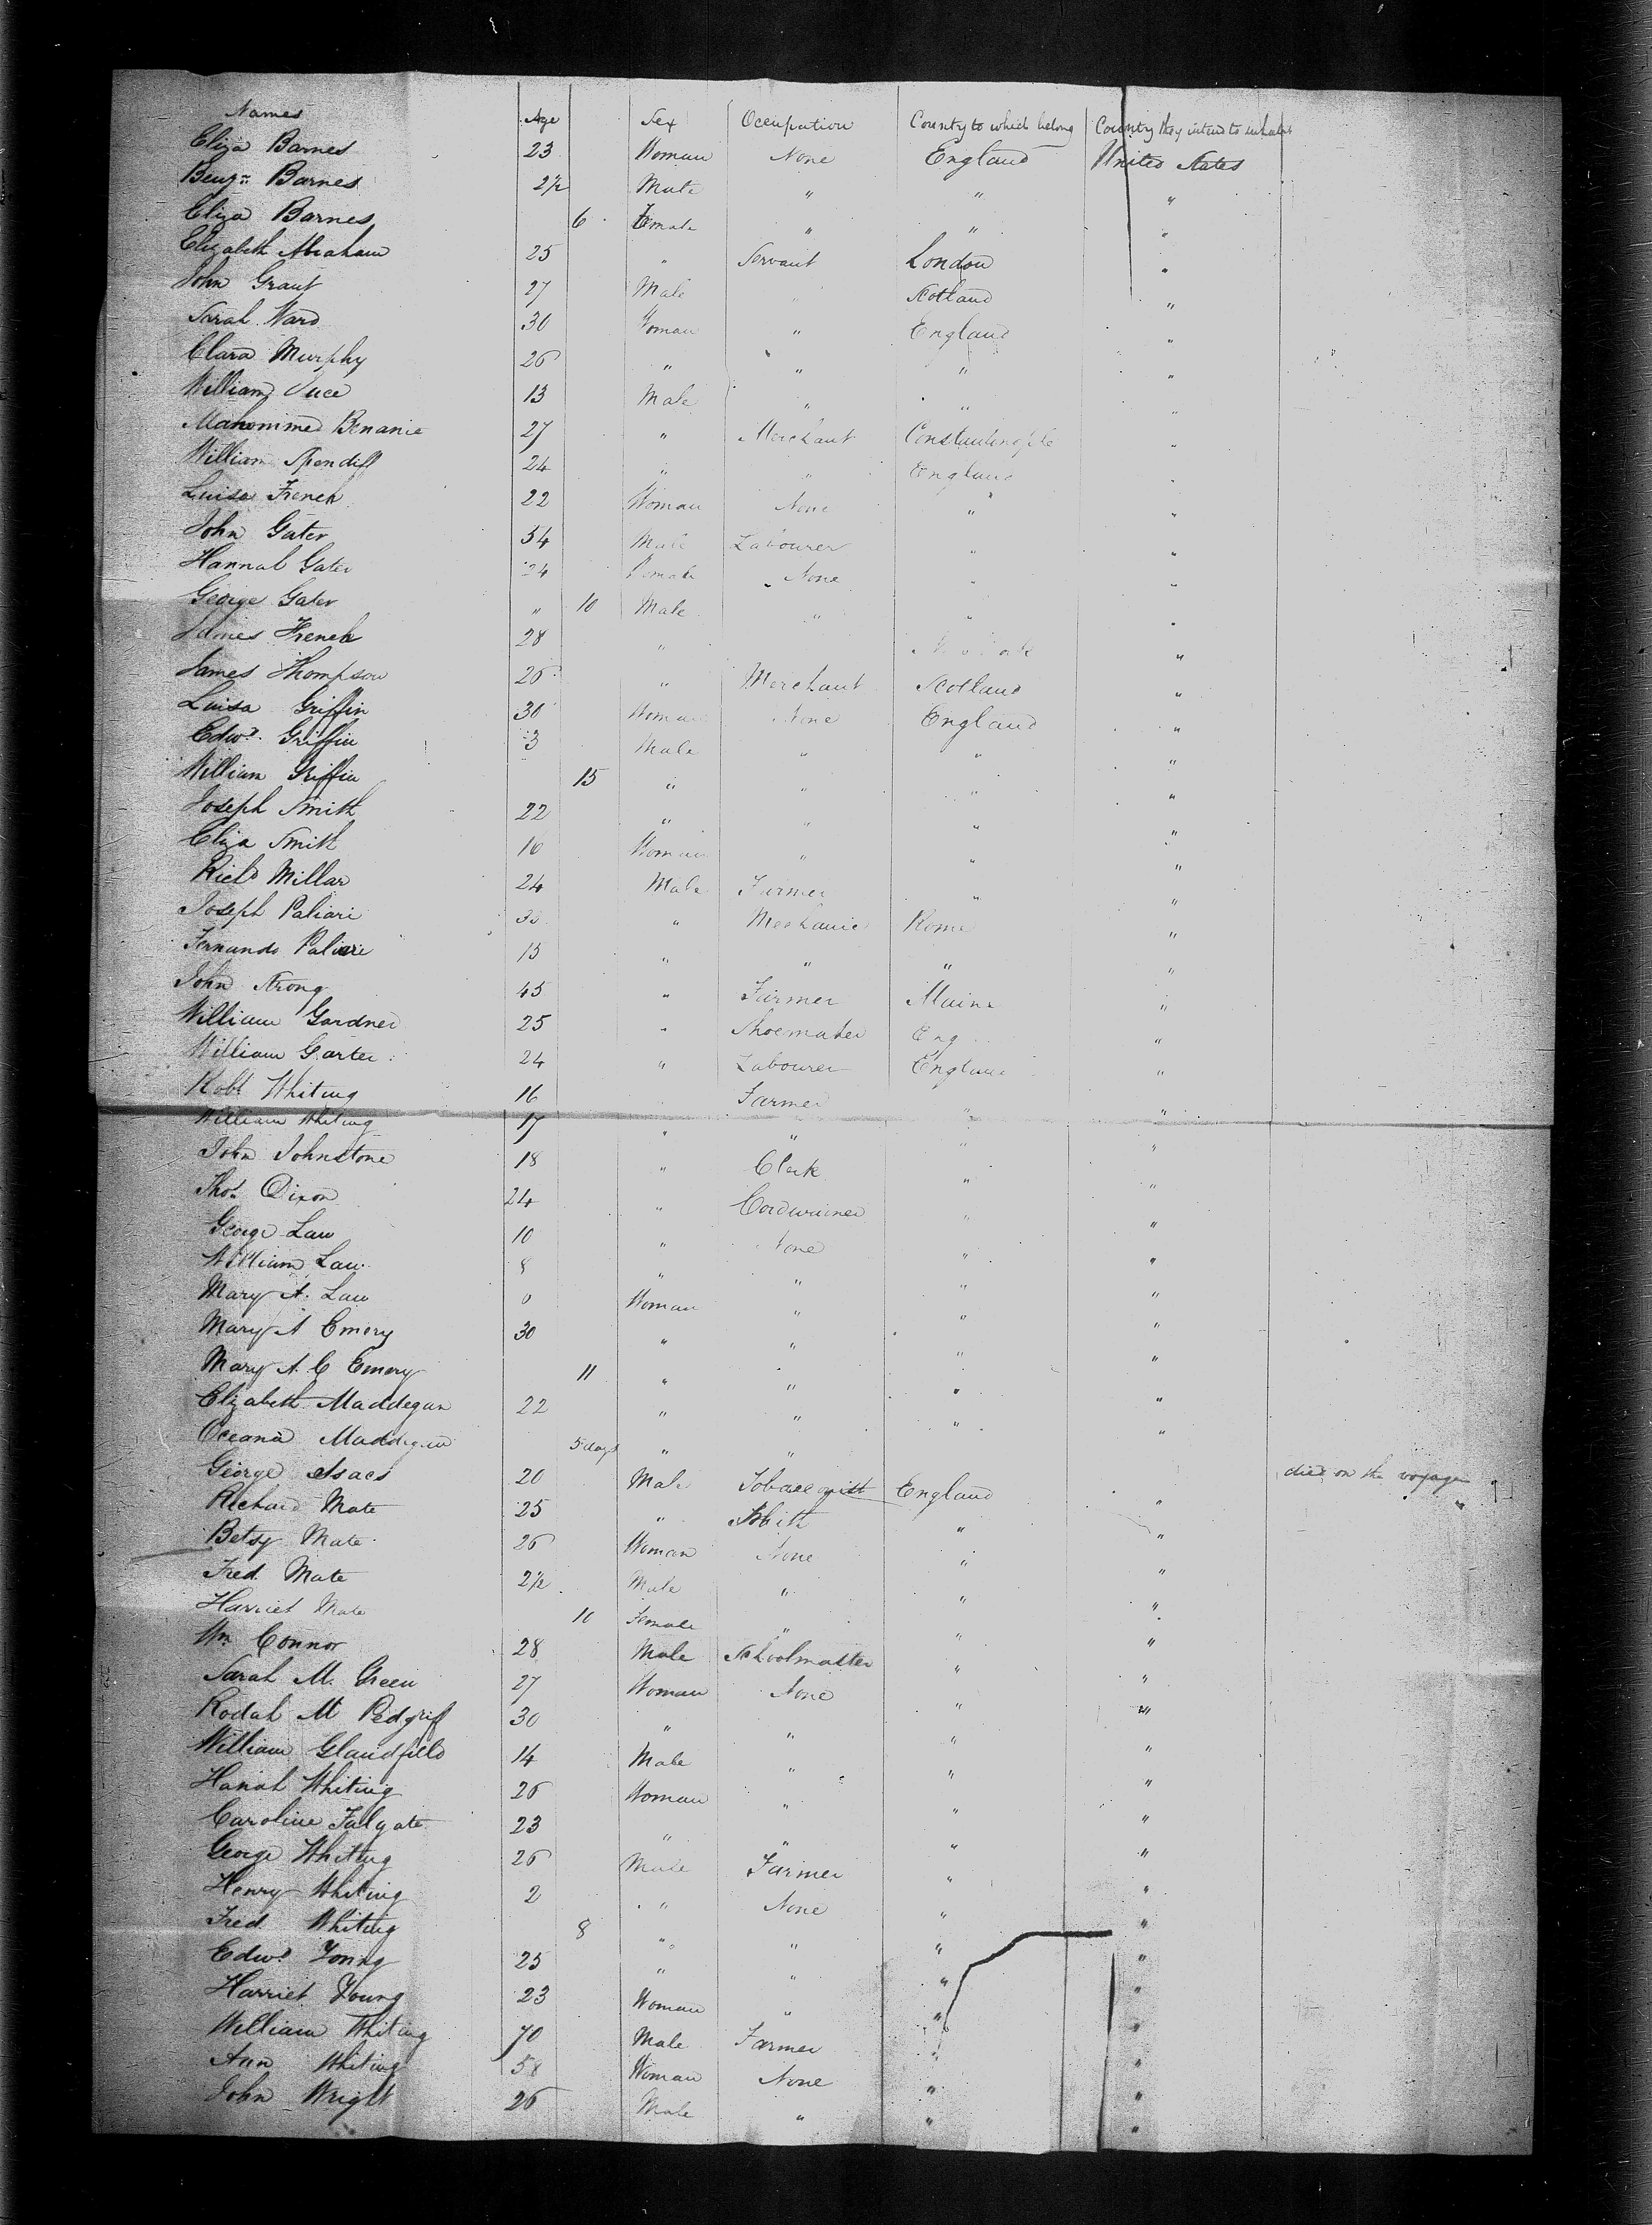 Names Age Sex Occupation County to which belong County they intend to inhabit
Eliza Barnes 23 Woman None England United States
Benjn Barnes 2½ Male " " "
Eliza Barnes 6 Female " " "
Elizabeth Abraham 25 " Servant London "
John Grant 27 Male " Scotland "
Sarah Ward 30 Woman " England "
Clara Murphy 26 " " " "
William 13 Male " " "
Mahommed Benanie 27 " Merchant Constantinople "
William 24 " " England "
Luisa French 22 Woman None " "
John Gater 54 Male Labourer " "
Hannah Gater 24 Female None " "
George Gater " 10 Male " " "
James French 28 " "
James Thompson 26 " Merchant Scotland "
Luisa Griffin 30 Woman None England "
Edwd. Griffin 3 Male " " "
William Griffin 15 " " " "
Joseph Smith 22 " " " "
Eliza Smith 16 Woman " " "
Richd Millar 24 Male Farmer " "
Joseph Paliari " Mechanic Rome "
Fernando 13 " " " "
John Strong 45 " Farmer Maine "
William Gardner 25 " Shoemaker Eng "
William Garter 24 " Labourer England "
Robt Whiting 16 Farmer " "
William Whiting 17 " " " "
John Johnstone 18 " Clerk " "
Thos. Dixon 24 " Cordwainer " "
George Law 10 " None " "
William Law 8 " " " "
Mary A. Law Woman " " "
Mary A Emery 30 " " " "
Mary A. C Emery 11 " " " "
Elizabeth Maddegan 22 " " " "
Oceana Maddegan 5 days " "
George Isaacs 20 Male Tobacconist England " died on the voyage
Richard Mate 25 " Smith " " "
Betsy Mate 26 Woman None " "
Fred. Mate 2½ Male " " "
Harriet Mate 10 Female " " "
Wm Connor 28 Male Schoolmaster " "
Sarah M. Green 27 Woman None " "
Rodah M Pedgrif 30 " " " "
William Glandfield 14 Male " " "
Hanah Whiting 26 Woman " " "
Caroline Falgate 23 " " " "
George Whiting 26 Male Farmer " "
Henry Whiting 2 " None " "
Fred. Whiting 8 " " " "
Edwd. Young 25 " " " "
Harriet Young 23 Woman " " "
William Whiting 70 Male Farmer " "
Ann Whiting 58 Woman None " "
John Wright 26 Male " " "